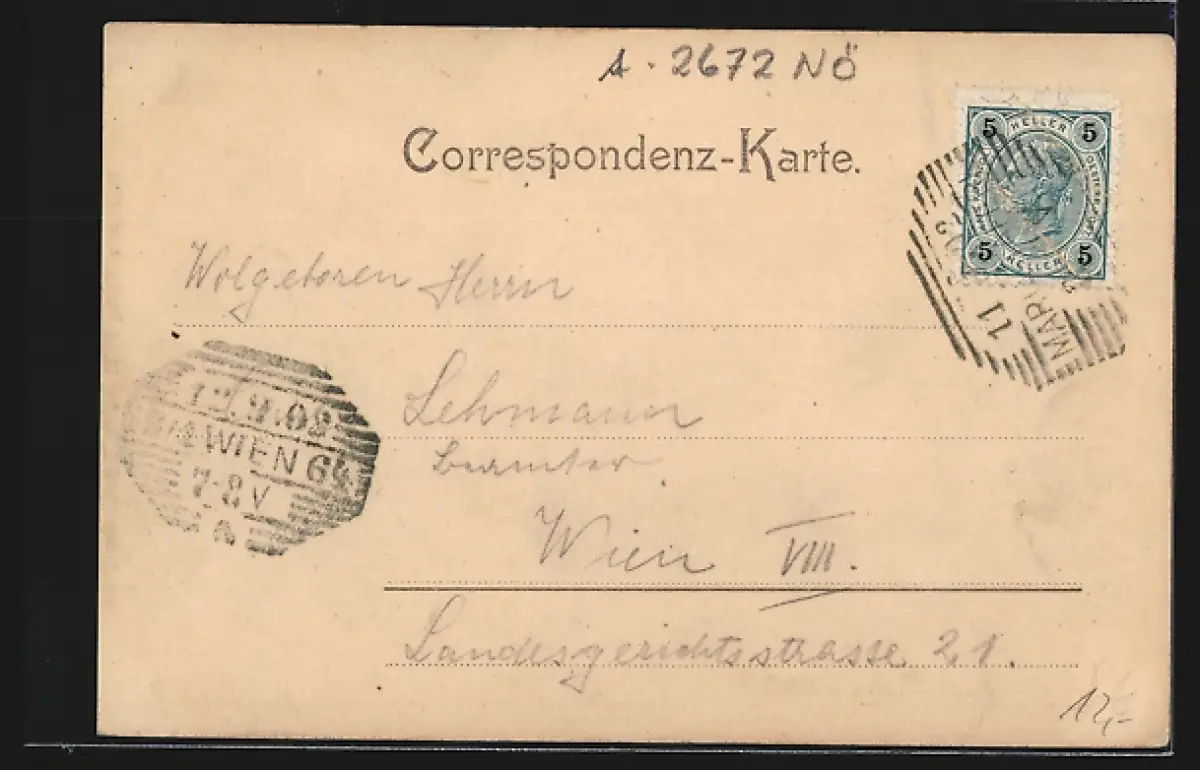 A - 2672 NÖ
Correspondenz-Karte.
5 HELLER 5
5 HELLER 5
11
MAR
Wolgeboren Herrn
12.9.02
WIEN 64
7-8V
Lehmann
Beamter
Wien VIII.
Landesgerichtsstrasse 21.
12,-